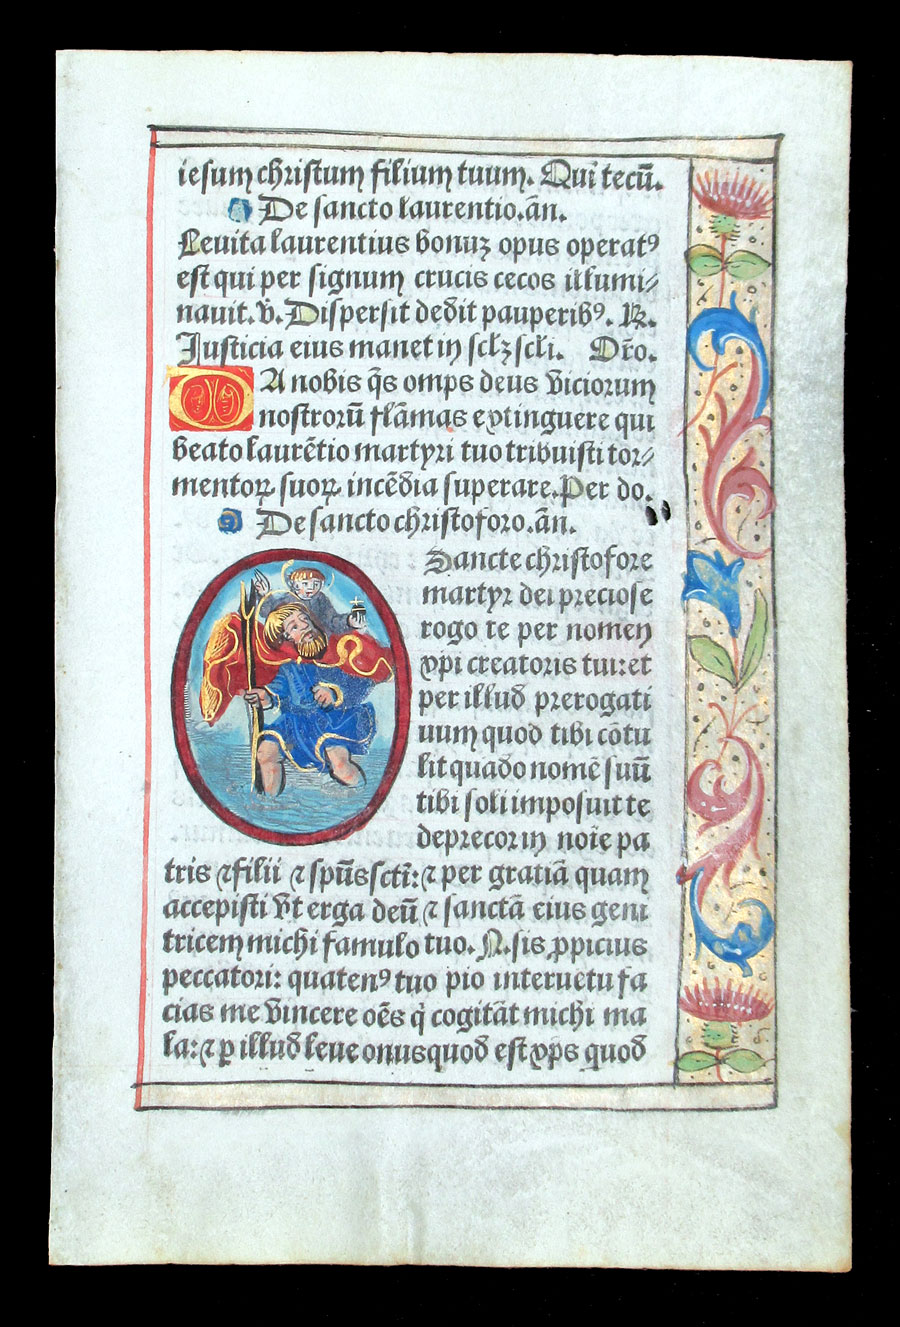 iesum christum filium tuum. Qui tecū.
De sancto laurentio. añ.
Levita laurentius bonuʒ opus operatꝰ
est qui per signum crucis cecos illumi⸗
nauit. v̄. Dispersit dedit pauperibꝰ. ℞.
Justicia eius manet in sclʒ scli. Or̄o.
DA nobis q̄s omps deus viciorum
nostrorū flāmas extinguere qui
beato laurētio martyri tuo tribuisti tor⸗
mentoꝝ suoꝝ incēdia superare. Per do.
De sancto christoforo. añ.
Sancte christofore
martyr dei preciose
rogo te per nomen
xpi creatoris tui: et
per illud prerogati
uum quod tibi cōtu
lit quādo nomē suū
tibi soli imposuit te
deprecor in noīe pa
tris ⁊ filii ⁊ spūs scti: ⁊ per gratiā quam
accepisti vt erga deū ⁊ sanctā eius geni
tricem michi famulo tuo. N. sis ꝓpicius
peccatori: quatenꝰ tuo pio interuētu fa
cias me vincere oēs q̇ cogitāt michi ma
la: ⁊ ꝑ illud leue onus quod est xps quod